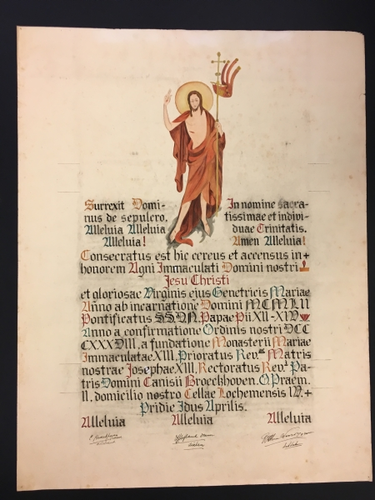 Surrexit Domi-
nus de sepulcro.
Alleluia Alleluia
Alleluia!
In nomine sacra-
tissimae et indivi-
duae Trinitatis.
Amen Alleluia!
Consecratus est hic cereus et accensus in
honorem Agni Immaculati Domini nostri
Jesu Christi
et gloriosae Virginis eius Genetricis Mariae
Anno ab incarnatione Domini MCMLII
Pontificatus SS.DN. Papae Pii XII-XIV
Anno a confirmatione Ordinis nostri DCC
CXXXVIII, a fundatione Monasterii Mariae
Immaculatae XIII, Prioratus Rev. Matris
nostrae Josephae XIII, Rectoratus Rev. Pa-
tris Domini Canisii Broeckhoven. O.Praem.
II. domicilio nostro Cellae Lochemensis IV.
Pridie Idus Aprilis.
Alleluia Alleluia Alleluia